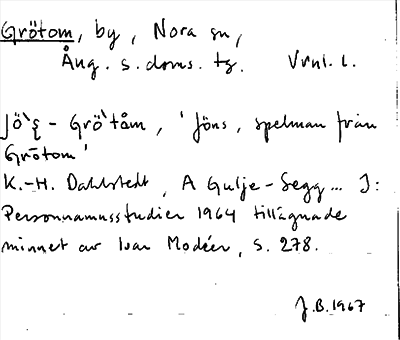 Grötom, by, Nora sn,
Ång. s. doms. tg. Vrnl. l.
Jö`ş - Grö`tåm, 'Jöns, spelman från
Grötom'
K.-H. Dahlstedt, A Gulje-Segg... I:
Personnamnsstudier 1964 tillägnade
minnet av Ivar Modéer, s. 278.
J.B. 1967